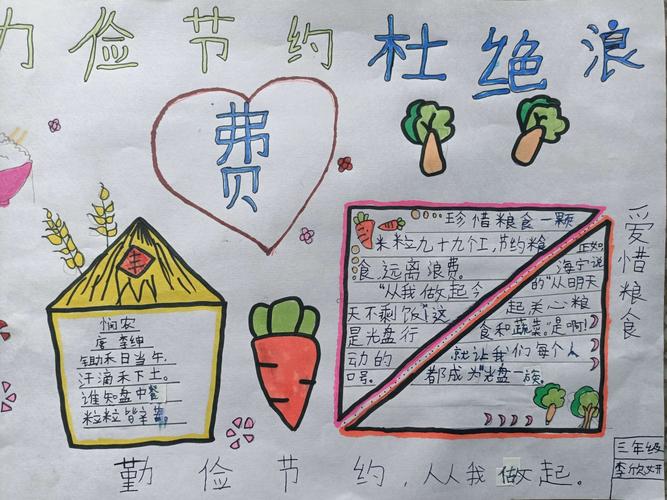 力俭节约杜绝浪
费
丰
悯农
唐 李绅
锄禾日当午,
汗滴禾下土。
谁知盘中餐
粒粒皆辛苦。
珍惜粮食一颗
米粒九十九个工,节约粮
食,远离浪费。
“从我做起今
天不剩饭”这
是光盘行
动的
口号。
正如
海宁说
的“从明天
起关心粮
食和蔬菜。”是啊!
就让我们每个人
都成为“光盘一族。
爱惜粮食
三年级
李欣妍
勤俭节约,从人我做起。